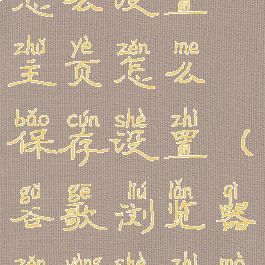 zhǔ yè zěn me
主页怎么
bǎo cún shè zhì
保存设置(
gǔ gē liú lǎn qì
谷歌浏览器
zěn yàng shè zhì mò